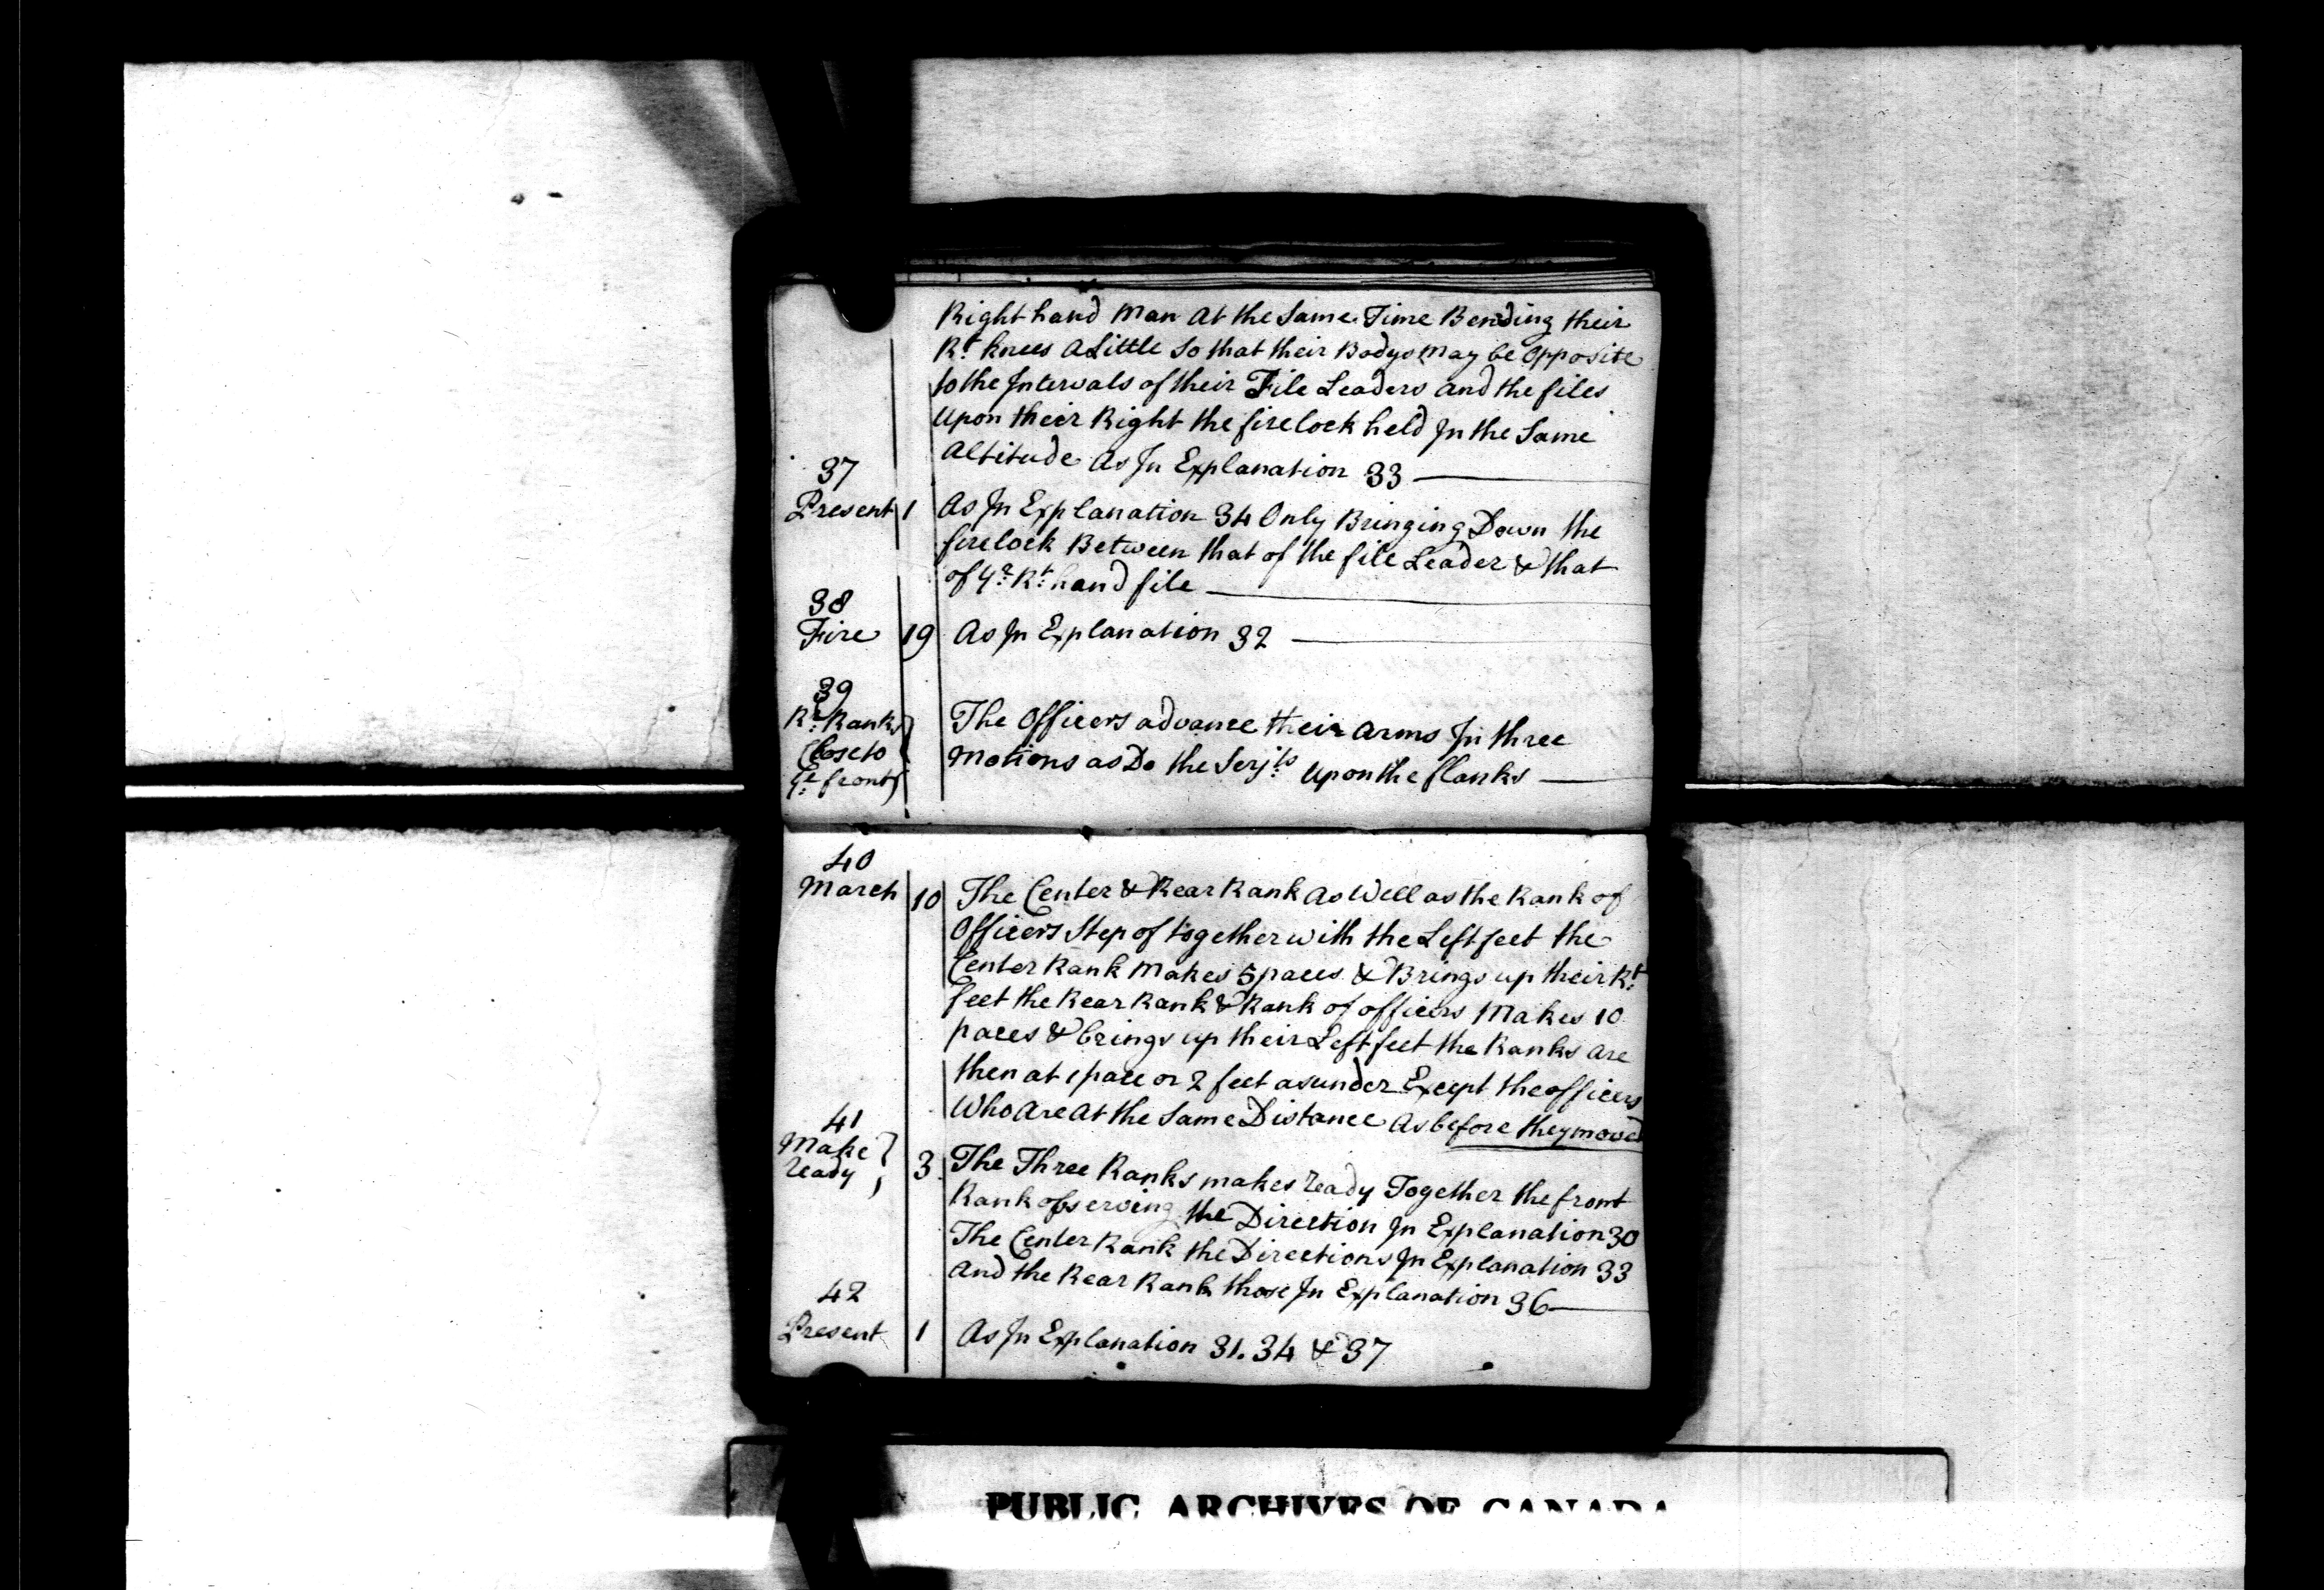 Right hand Man At the Same Time Bending their
Rt knees A Little So that their Bodys May be Opposite
to the Intervals of their File Leaders and the files
Upon their Right the firelock held In the Same
Altitude As In Explanation 33
37
Present 1 As In Explanation 34 Only Bringing Down the
firelock Between that of the file Leader & that
of Yr Rt hand file
38
Fire 19 As In Explanation 32
39
Rr Ranks The Officers advance their Arms In three
Close to Motions as Do the Serjts Upon the flanks
Ye front
40
March 10 The Center & Rear Rank As Well as the Rank of
Officers Step of together with the Left feet the
Center Rank Makes 5 paces & Brings up their Rt
feet the Rear Rank & Rank of officers Makes 10
paces & brings up their Left feet the Ranks Are
then at 1 pace or 2 feet asunder Except the officers
Who Are At the Same Distance As before they moved
41
Make ready 3 The Three Ranks makes ready Together the front
Rank observing the Direction In Explanation 30
The Center Rank the Directions In Explanation 33
And the Rear Rank those In Explanation 36
42
Present 1 As In Explanation 31. 34 & 37
PUBLIC ARCHIVES OF CANADA